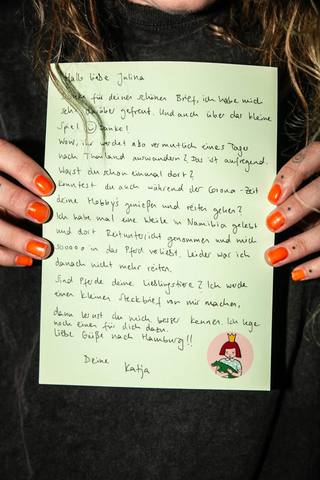 Hallo liebe Julina
Danke für deinen schönen Brief, ich habe mich
sehr darüber gefreut. Und auch über das kleine
Spiel ☺ Danke!
Wow, ihr werdet also vermutlich eines Tages
nach Thailand auswandern? Das ist aufregend.
Warst du schon einmal dort?
Konntest du auch während der Corona-Zeit
deine Hobby's genießen und reiten gehen?
Ich habe mal eine Weile in Namibia gelebt
und dort Reitunterricht genommen und mich
sooooo in das Pferd verliebt, leider war ich
danach nicht mehr reiten.
Sind Pferde deine Lieblingstiere? Ich werde
einen kleinen Steckbrief von mir machen,
dann lernst du mich besser kennen. Ich lege
noch einen für dich dazu.
Liebe Grüße nach Hamburg!!
Deine
Katja